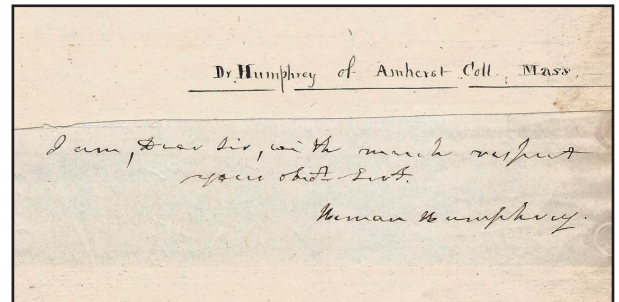 Dr. Humphrey of Amherst Coll. Mass.
I am, Dear Sir, with much respect
your obdt. Servt.
Heman Humphrey.